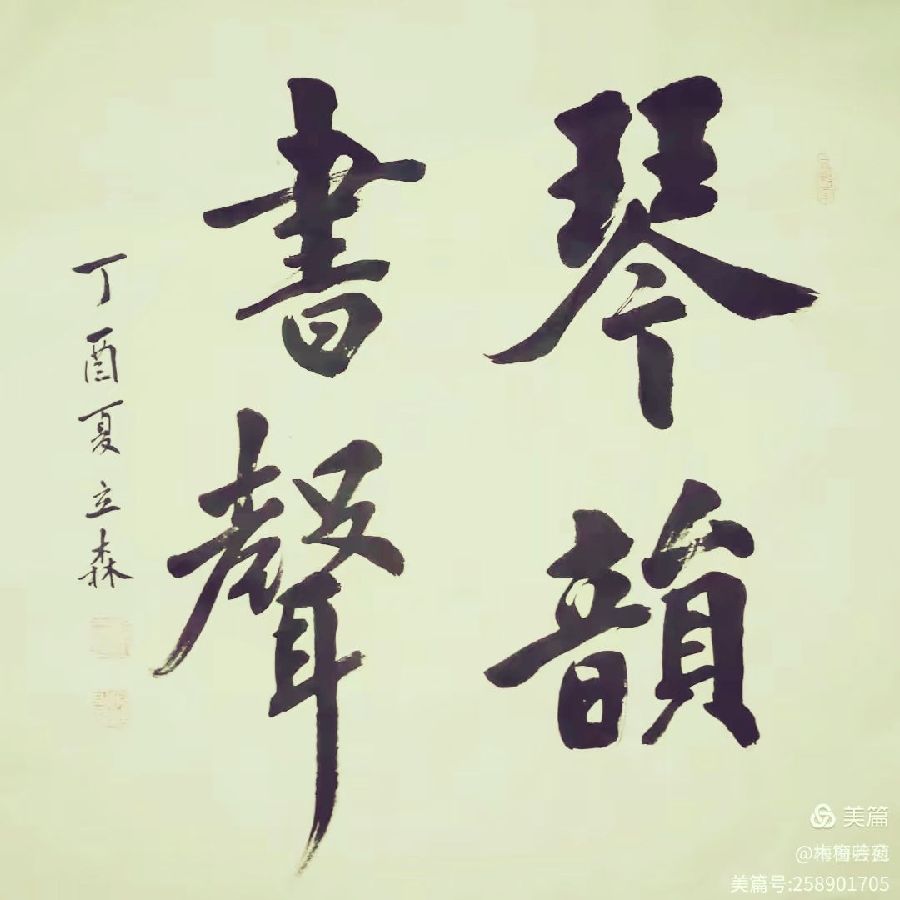 琴韻
書聲
丁酉夏立森
美篇
美篇号:258901705